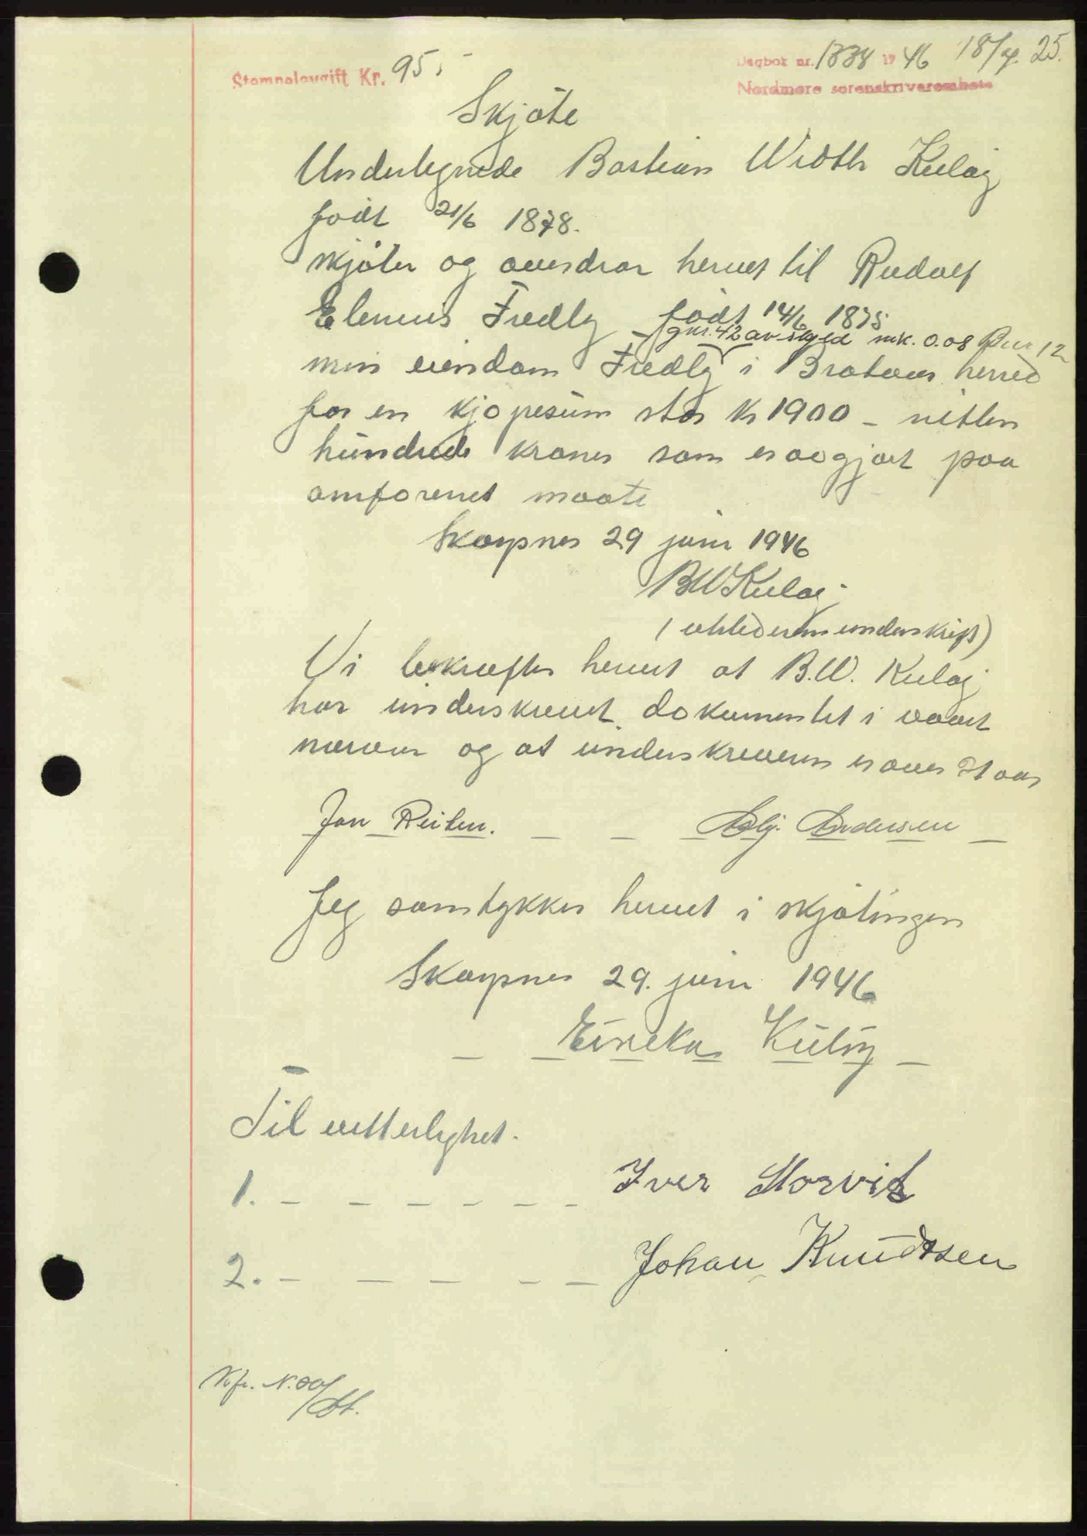 Stempelavgift Kr. 95,-
Dagbok nr. 1338 1946 18/7. 25.
Nordmøre sorenskriverembete
Skjøte
Undertegnede Bastian Width Kuløy
født 21/6 1878.
skjøter og averdrar hervet til Rudolf
Elenius Fredly født 14/6 1875
gnr. 42 av skyld mk. 0.08 Bnr 12
min eiendom Fredly i herred
for en kjøpesum stor kr 1900 - nitten
hundrede kroner som er avgjort paa
omforenet maate
Skarpnes 29 juni 1946
BWKuløy
(underskrift)
Vi bekræfter hervet at B.W. Kuløy
har underskrevet dokumentet i vaart
nærvær og at underskriveren er over 21 aar
Jon Reiten. - - Andersen -
Jeg samtykker hervet i skjøtingen
Skarpnes 29. juni 1946
- Eineka Kuløy -
Til vitterlighet.
1. - - - - - - Iver Storvik
2. - - - - - Johan Knudtsen